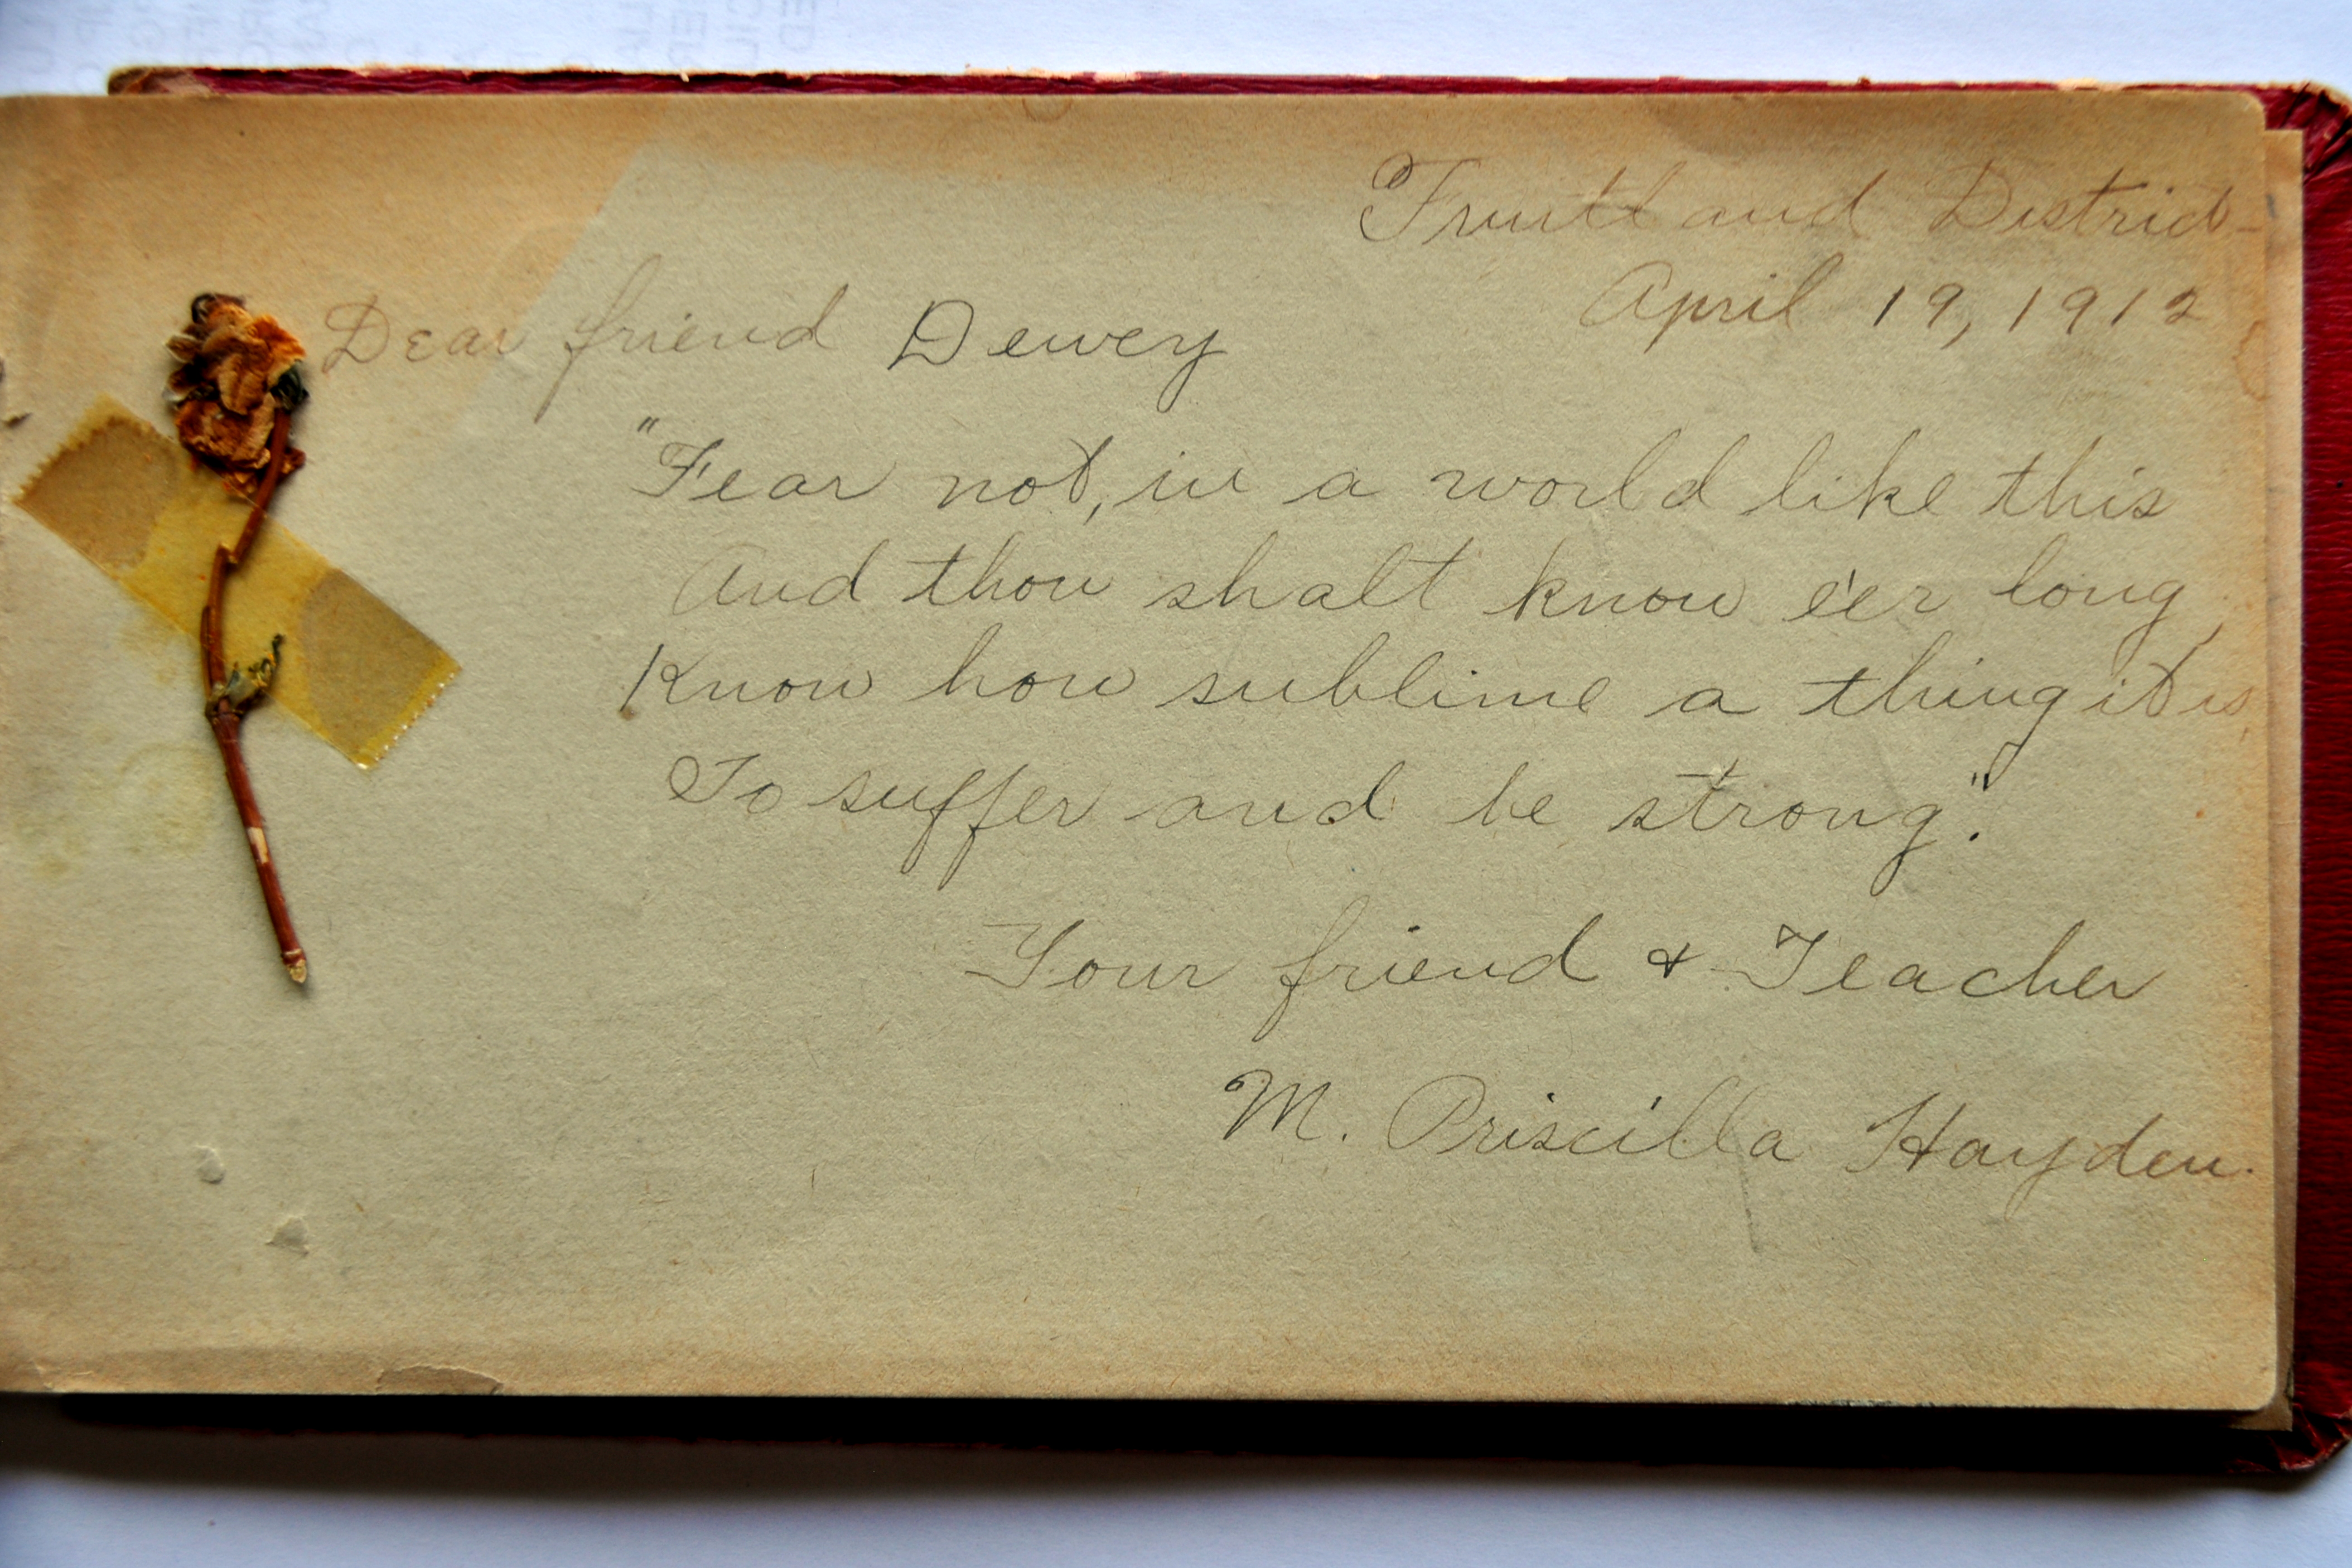 Fruitland District
April 19, 1912
Dear friend Dewey
"Fear not, in a world like this
And thou shalt know e'er long,
Know how sublime a thing it is
To suffer and be strong."
Your friend & Teacher
M. Priscilla Hayden.